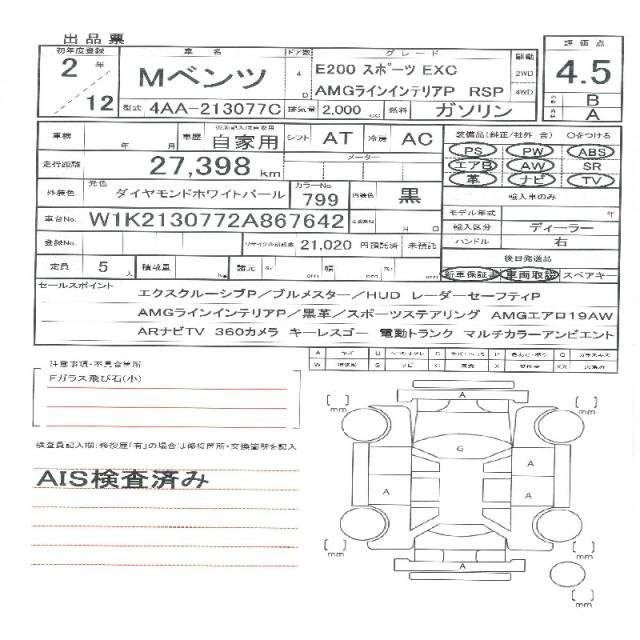 出品票
初年度登録 車名 ドア数 グレード 駆動 評価点
2 年 12
Mベンツ
4 D
E200 スポーツ EXC
AMGラインインテリアP RSP
2WD
4WD
4.5
型式 4AA-213077C 排気量 2,000 cc 燃料 ガソリン
B
A
車検 年 月 車歴 自家用 シフト AT 冷房 AC
装備品(純正/社外 含) Oをつける
PS PW ABS
走行距離 27,398 km メーター
エアB AW SR
革 ナビ TV
外装色 元色 ダイヤモンドホワイトパール カラーNo 799 内装色 黒
輸入車のみ
車台No. W1K2130772A867642 月 日
モデル年式 年
輸入区分 ディーラー
登録No. リサイクル預託金 21,020 円預託済 未預託
ハンドル 右
定員 5 人 積載量 kg 諸元 長 cm 幅 cm 高 cm
後日発送品
新車保証書 車両取説 スペアキー
セールスポイント
エクスクルーシブP/ブルメスター/HUD レーダーセーフティP
AMGラインインテリアP/黒革/スポーツステアリング AMGエアロ19AW
ARナビTV 360カメラ キーレスゴー 電動トランク マルチカラーアンビエント
注意事項・不具合箇所
Fガラス飛び石(小)
検査員記入欄:修復歴「有」の場合は修復箇所・交換箇所を記入
AIS検査済み
mm
mm
A
G
A
A
A
A
mm
mm
mm